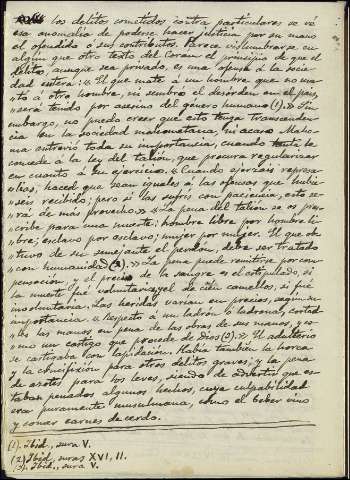 los delitos cometidos contra particulares se vé
esa anomalía de poderse hacer justicia por su mano
el ofendido ó sus contributos. Parece vislumbrarse en
algún que otro texto del Coran el principio de que el
delito, aunque sea privado, es una ofensa á la socie-
dad entera: « El que mate á un hombre que no ma-
«tó á otro hombre, ni sembró el desórden en el país,
«será tenido por asesino del género humano (1).» Sin
embargo, no puedo creer que esto tenga trascenden-
cia en la sociedad mahometana, ni acaso Maho-
ma entrevió toda su importancia, cuando tanta la
concede á la ley del talión, que procura regularizar
en cuanto á su ejercicio. « Cuando ejerzais represa-
«lias, haced que sean iguales á las ofensas que hubie-
«seis recibido; pero si las sufrís con paciencia, esto se-
«rá de más provecho.» « La pena del talión se os pres-
«cribe para una muerte: hombre libre por hombre li-
«bre; esclavo por esclavo; mujer por mujer. El que ob-
«tuvo de su semejante el perdón, debe ser tratado
«con humanidad (2).» La pena puede remitirse por com-
pensacion y el precio de la sangre es el estipulado, si
la muerte fué voluntaria, y el de cien camellos, si fué
involuntaria. Las heridas varían en precios, segun su
importancia. « Respecto á un ladrón ó ladrona, cortad-
«les las manos en pena de las obras de sus manos, y co-
«mo un castigo que procede de Dios (3).» El adulterio
se castigaba con lapidacion. Había también la horca
y la crucifixión para otros delitos graves; y la pena
de azotes para los leves, siendo de advertir que es-
taban penados algunos hechos, cuya culpabilidad
era puramente musulmana, como el beber vino
y comer carnes de cerdo.
(1). Ibid, sura V.
(2) Ibid, suras XVI, II.
(3). Ibid., sura V.